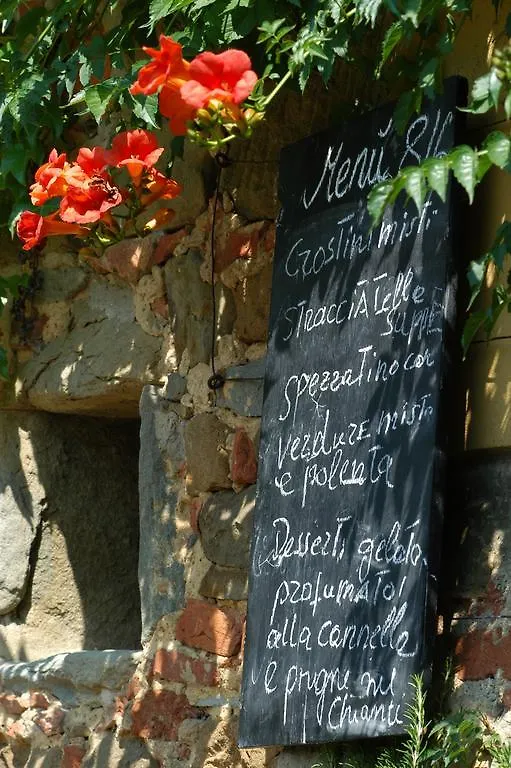 Menú 8/6
Crostini misti
stracciatelle
suppe
spezzatino con
verdure miste
e polenta
Dessert, gelato
profumato
alla cannella
e prugne nel
Chianti